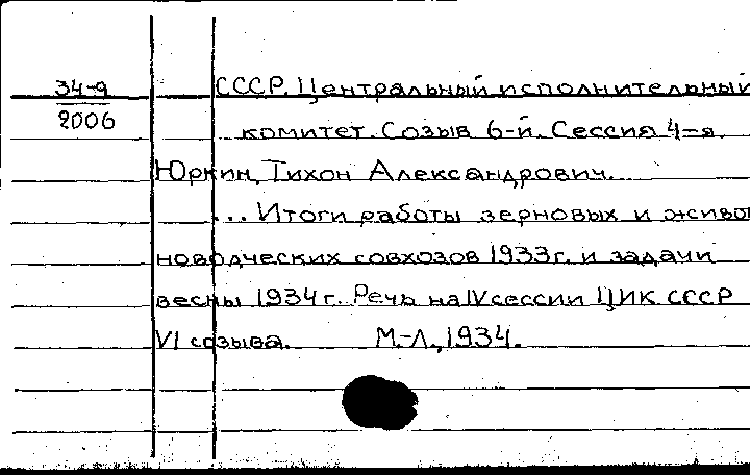 34-9
2006
СССР. Центральный исполнительный
комитет. Созыв 6-й. Сессия 4-я.
Юркин, Тихон Александрович.
... Итоги работы зерновых и живот
новодческих совхозов 1933г. и задачи
весны 1934г. Речь на IV сессии ЦИК СССР
VI созыва. М.-Л., 1934.